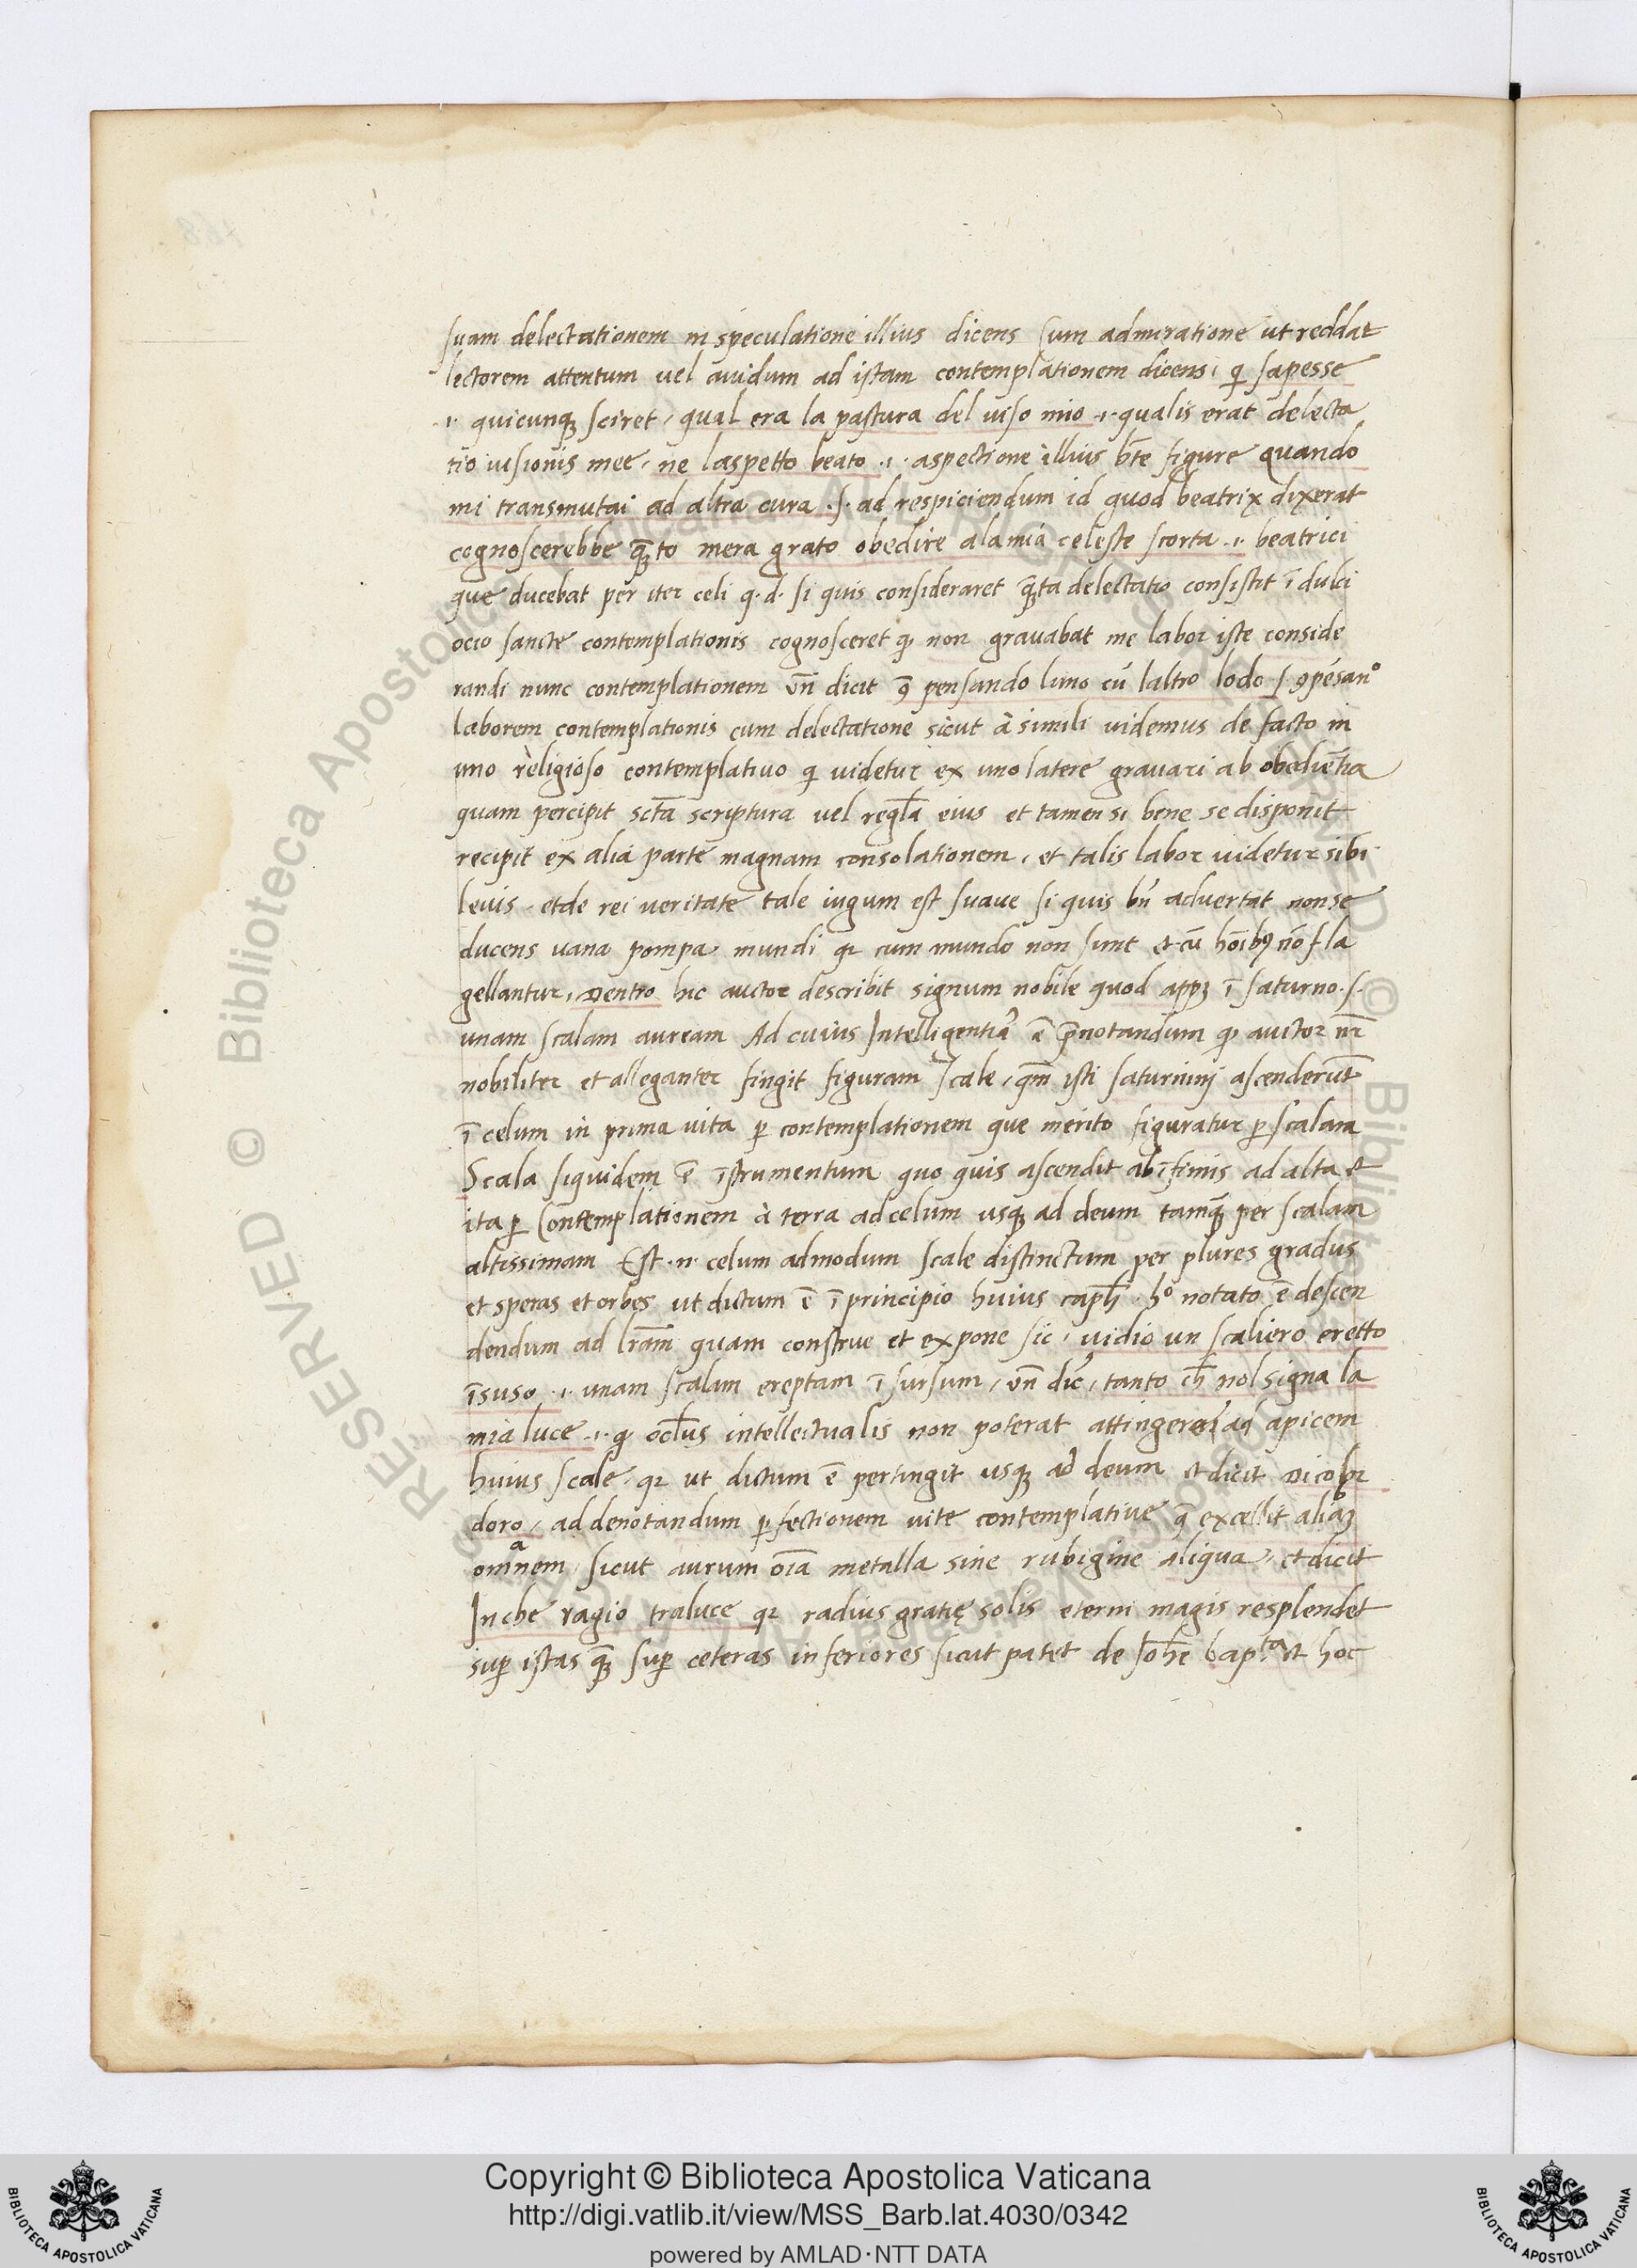 suam delectationem in speculatione illius dicens cum admiratione ut reddat
lectorem attentum vel avidum ad istam contemplationem dicens. qi sapesse
.i. quicunqꝫ sciret, qual era la pastura del viso mio .i. qualis erat delecta
tio visionis mee, ne laspetto beato .i. aspectione illius bt̄e figure quando
mi transmutai ad altra cura .s. ad respiciendum id quod beatrix dixerat
cognoscerebbe qꝫto mera grato obedire ala mia celeste scorta .i. beatrici
que ducebat per iter celi q. d. si quis consideraret qꝫta delectatio consistit ī dulci
ocio sancte contemplationis cognosceret qp non gravabat me labor iste conside
randi nunc contemplationem vn̄ dicit ꝯ pensando luno cū laltro lodo .s. ꝯpēsanᵒ
laborem contemplationis cum delectatione sicut à simili videmus de facto in
uno religioso contemplativo qi videtur ex uno latere gravari ab obediētia
quam percipit sctā scriptura vel regl̄a eius et tamen si bene se disponit
recipit ex alia parte magnam consolationem, et talis labor videtur sibi
levis. et de rei veritate tale iugum est suave si quis bn̄ advertat non se
ducens vana pompa mundi qr cum mundo non sunt et cū hoībꝰ nō fla
gellantur, Dentro hic auctor describit signum nobile quod appꝫ ī saturno .s.
unam scalam auream Ad cuius Intelligentiā ē p̄notandum qp auctor nr̄
nobiliter et alleganter fingit figuram scale, qm̄ isti saturninj ascenderūt
ī celum in prima vita ꝑ contemplationem que merito figuratur ꝑ scalam
Scala siquidem ē īstrumentum quo quis ascendit ab īfimis ad alta et
ita ꝑ Contemplationem à terra ad celum usqꝫ ad deum tamqꝫ per scalam
altissimam Est .n. celum admodum scale distinctum per plures gradus
et speras et orbes ut dictum ē ī principio huius capli. hᵒ notato ē descen
dendum ad lr̄am quam construe et expone sic, vidio un scaliero eretto
īsuso .i. unam scalam ereptam ī sursum, vn̄ dic̄, tanto ch̄ nol signa la
mia luce .i. qp oclus intellectualis non poterat attingere ad apicem
huius scale. qr ut dictum ē pertingit usqꝫ ad deum et dicit Di color
doro, ad denotandum ꝑfectionem vite contemplative q̄ excellit aliāꝫ
omnem, sicut aurum oīa metalla sine rubigine aliqua, et dicit
In che ragio traluce qr radius gratię solis eterni magis resplendet
suꝑ istas qꝫ suꝑ ceteras inferiores sicut patet de Ioh̄e bapᵗᵃ et hoc
Copyright © Biblioteca Apostolica Vaticana
http://digi.vatlib.it/view/MSS_Barb.lat.4030/0342
powered by AMLAD·NTT DATA
BIBLIOTECA APOSTOLICA VATICANA
BIBLIOTECA APOSTOLICA VATICANA